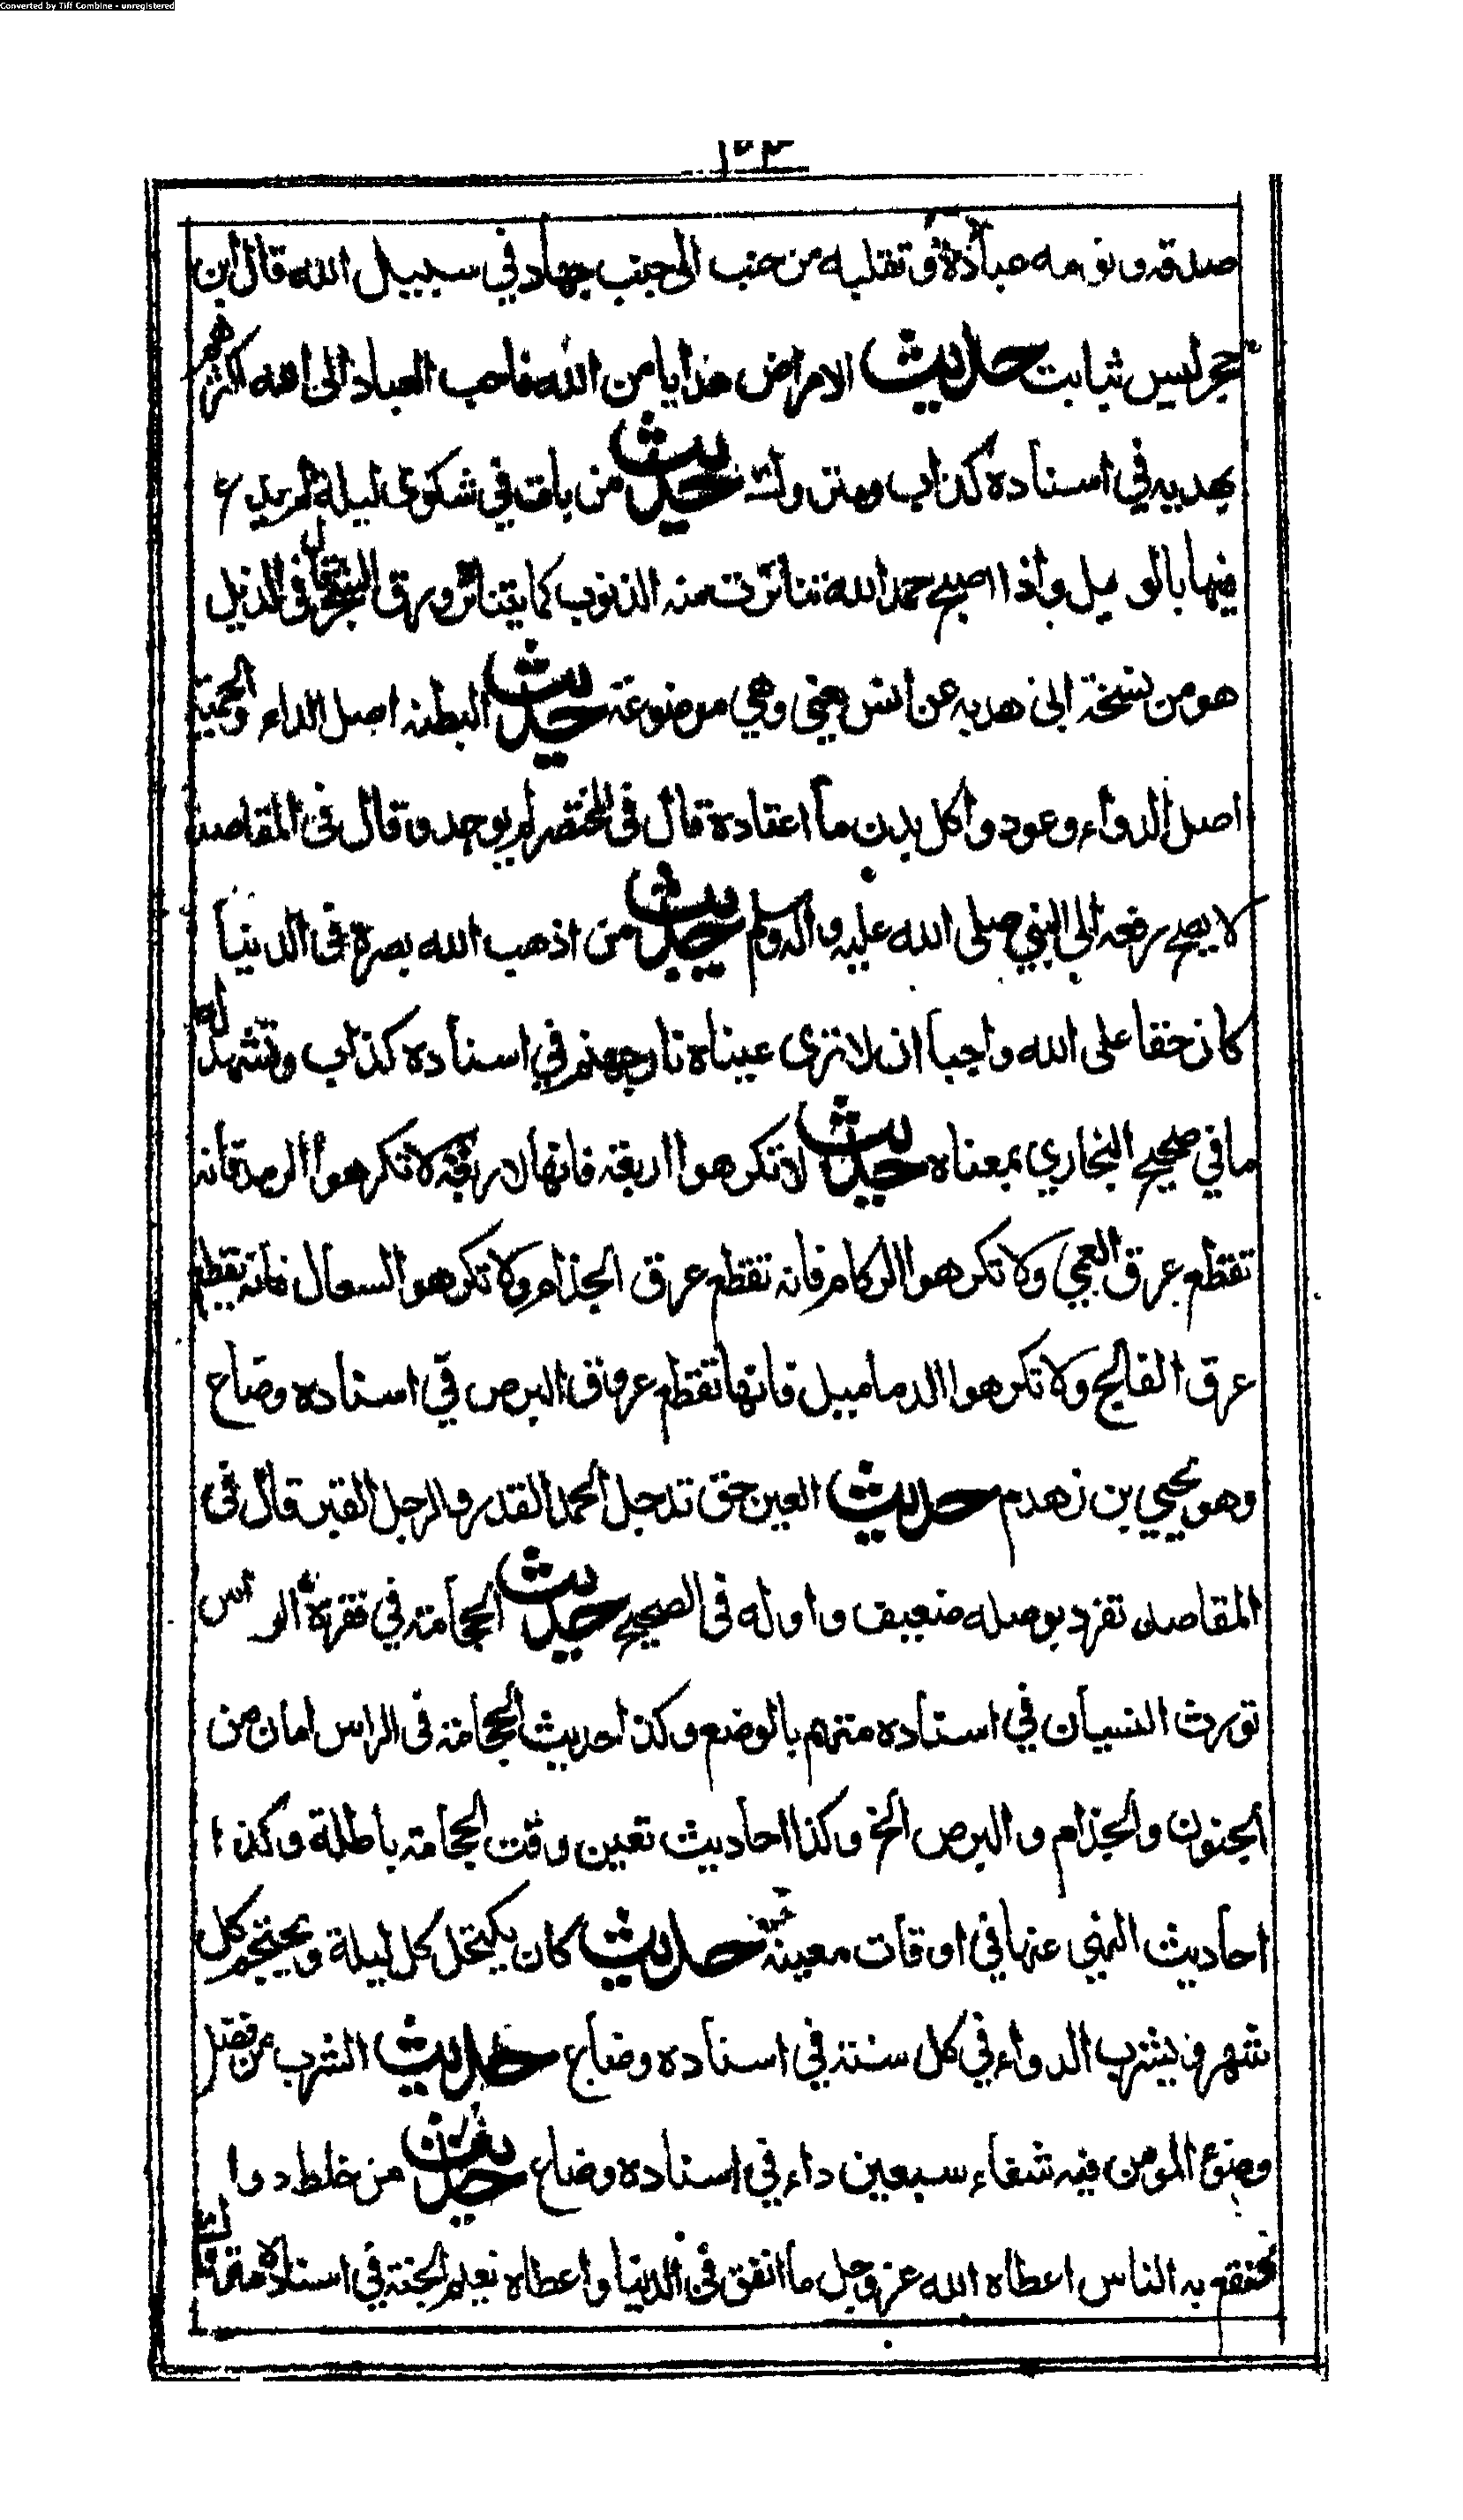 Converted by Tiff Combine - unregistered
صدقه ونومه عبادة وتقلبه من جنب الى جنب جهاد في سبيل الله قال ابن
حجر ليس ثبابت حديث الامراض هدايا من الله فاحب العباد الى الله اكثرهم
بهديه في اسناده كذاب ومتروك حديث من بات في شكوى ليلة لم يدع
فيها بالويل واذا اصبح حمد الله تناثرت منه الذنوب كما يتناثر ورق الشجر قال في الذيل
هو من نسخة ابى هدبه عن انس رضي وهي موضوعة حديث البطنه اصل الداء والحمية
اصل الدواء وعودوا كل بدن ما اعتاده قال فى المختصر لم يوجد وقال فى المقاصد
لا يصح رفعه الى النبي صلى الله عليه واله وسلم حديث من اذهب الله بصره فى الدينا
كان حقا على الله واجبا ان لا ترى عيناه نار جهنم في اسناده كذاب وتشهد له
ما في صحيح البخاري بمعناه حديث لا تكرهوا اربعة فانها لاربعة لا تكرهوا الرمد فانه
تقطع عرق العمي ولا تكرهوا الزكام فانه تقطع عرق الجذام ولا تكرهوا السعال فانه تقطع
عرق الفالج ولا تكرهوا الدماميل فانها تقطع عروق البرص في اسناده وضاع
وهو يحيي بن زهدم حديث العين حق تدخل الحمل القدر والرجل القبر قال فى
المقاصد تفرد بوصله ضعيف واوله فى الصحيح حديث الحجامة في نقرة الراس
تورث النسيان في اسناده متهم بالوضع وكذا حديث الحجامة فى الراس امان من
الجنون والجذام والبرص الخ وكذا احاديث تعين وقت الحجامة باطلة وكذا
احاديث النهي عنها في اوقات معينة حديث كان يكتحل كل ليلة ويحتجم كل
شهر ويشرب الدواء في كل سنة في اسناده وضاع حديث الشرب من فضل
وضوء المومن فيه شفاء سبعين داء في اسناده وضاع حديث من خلط دوا
فنفع به الناس اعطاه الله عز وجل ما انفق فى الدنيا واعطاه نعيم الجنة في اسناده